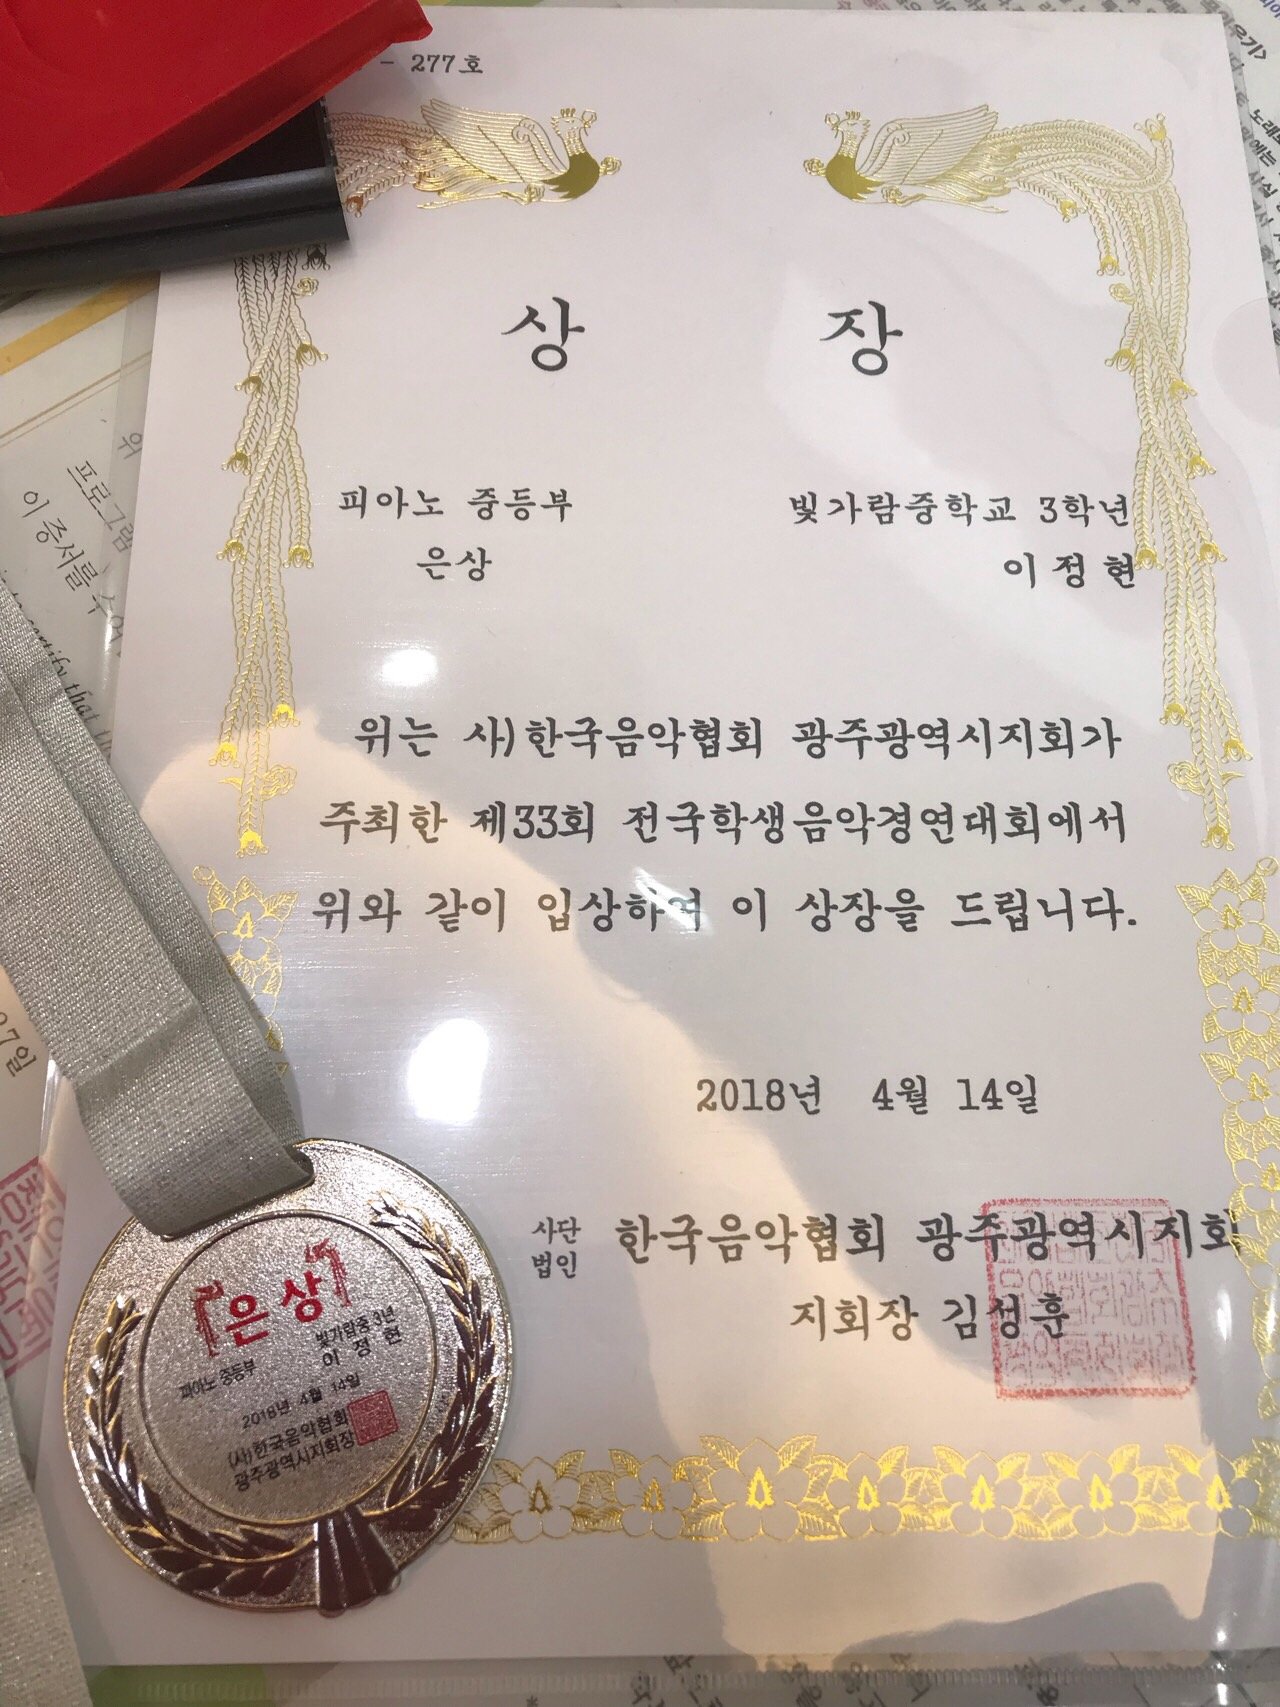 - 277호
상 장
피아노 중등부
은상
빛가람중학교 3학년
이정현
위는 사)한국음악협회 광주광역시지회가
주최한 제33회 전국학생음악경연대회에서
위와 같이 입상하여 이 상장을 드립니다.
2018년 4월 14일
사단
법인
한국음악협회 광주광역시지회
지회장 김성훈
은상
빛가람중 3년
이 정 현
피아노 중등부
2018년 4월 14일
(사)한국음악협회
광주광역시지회장
위
프로그램
이 증서를 수여
certify that
27일
노래
에는
사실